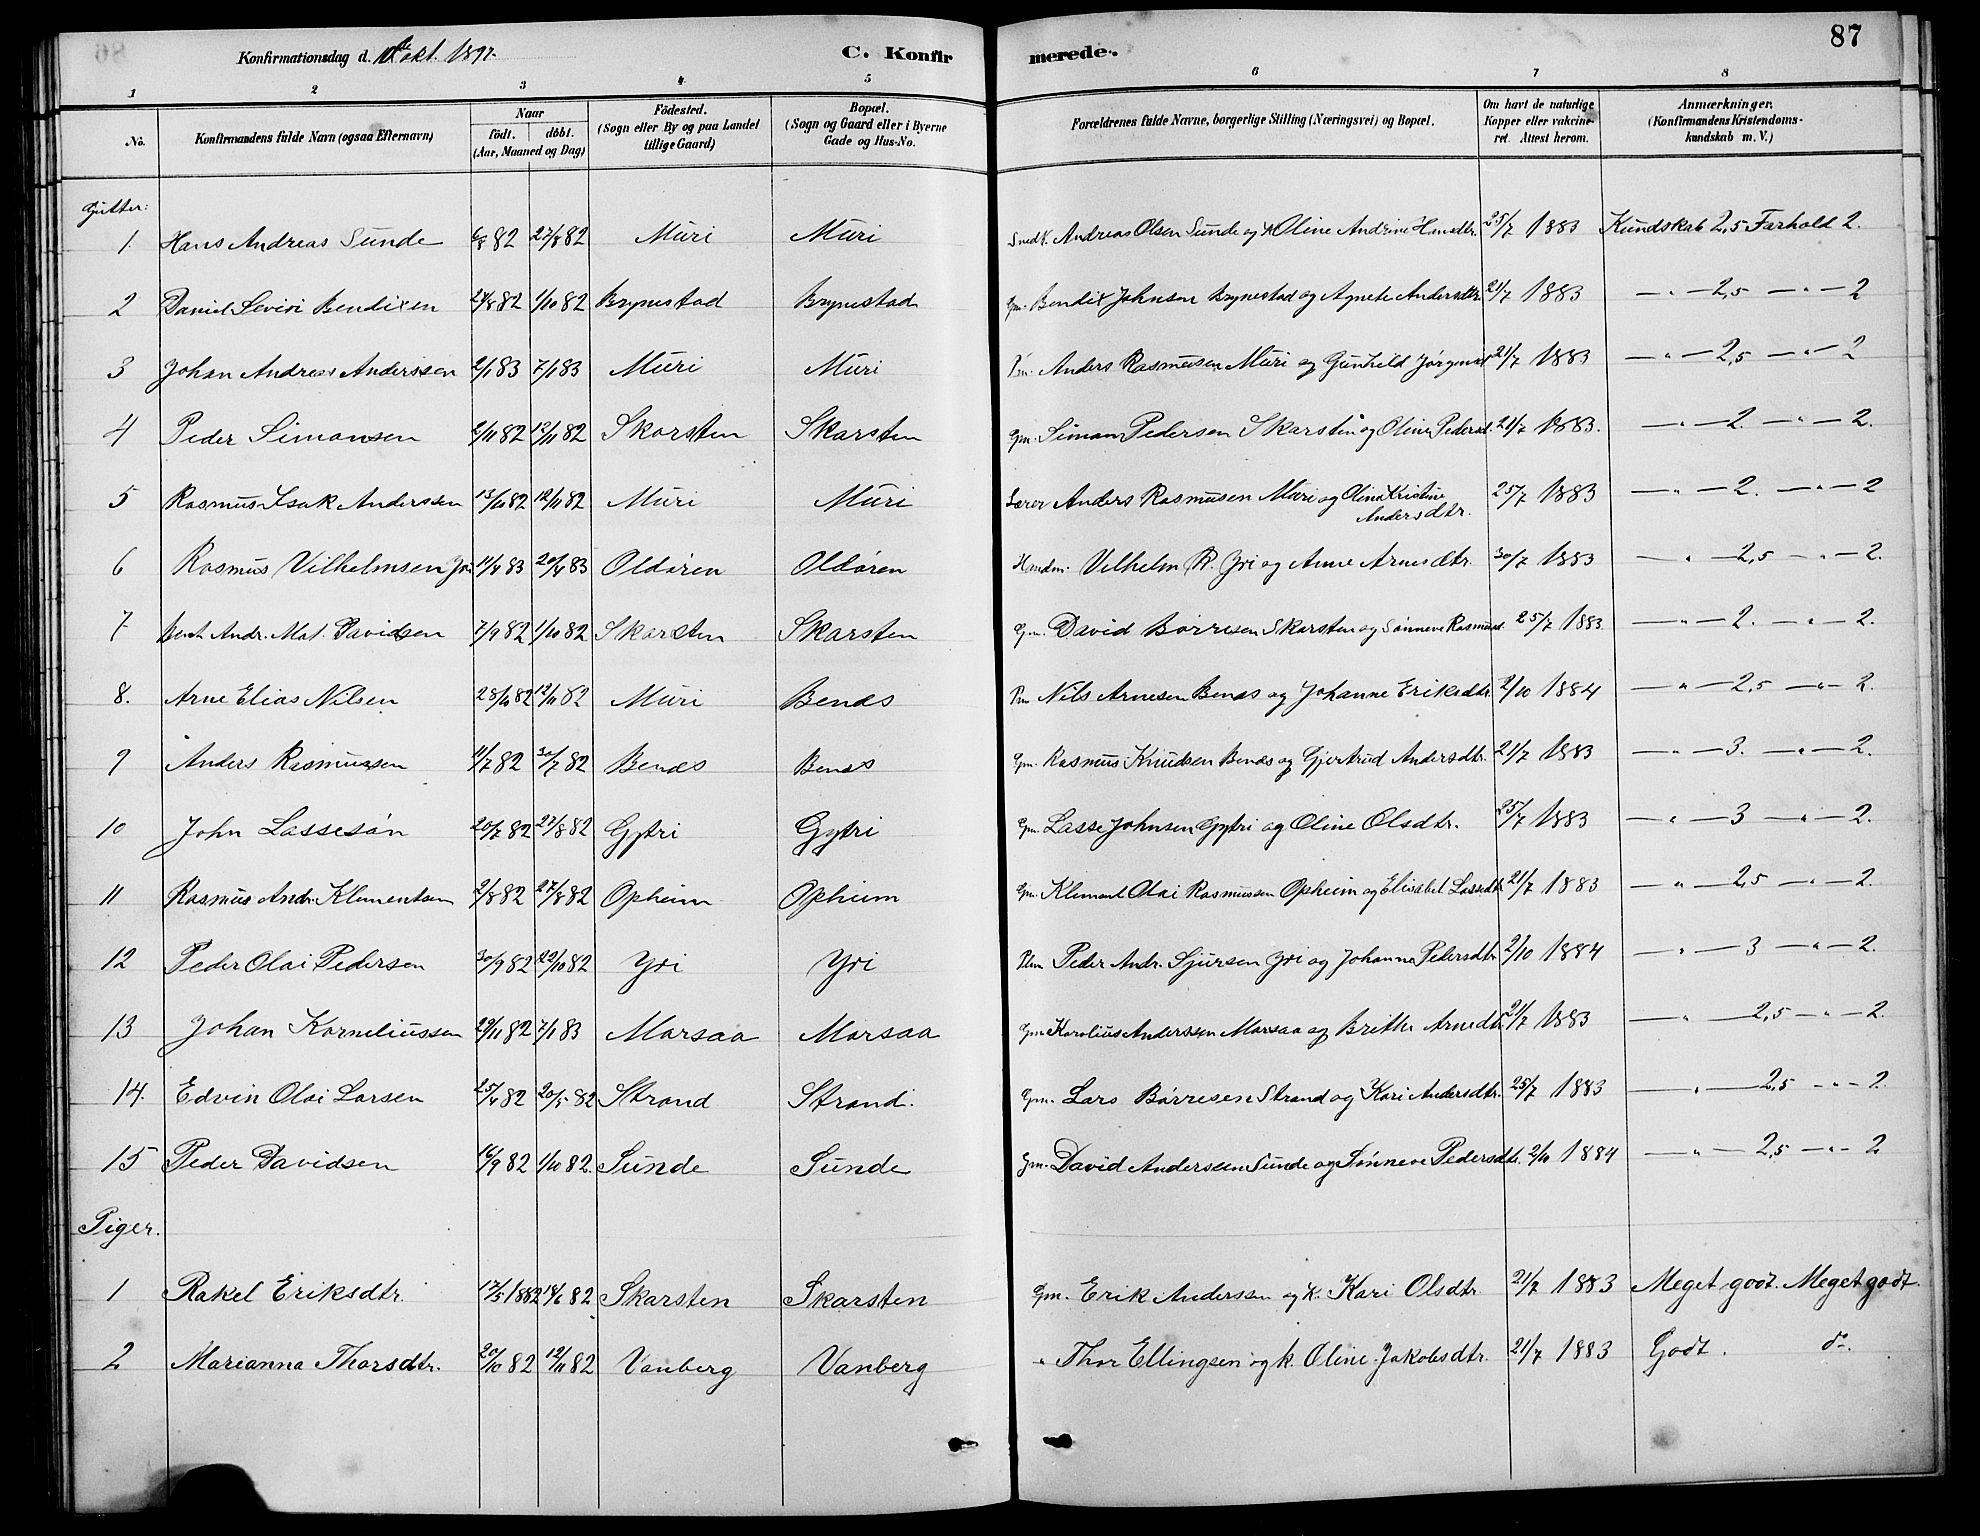 87
Konfirmationsdag d. 10de okt. 1897.
C. Konfirmerede.
1 2 3 4 5 6 7 8
No.
Konfirmandens fulde Navn (ogsaa Efternavn)
Naar
födt. döbt.
(Aar, Maaned og Dag)
Födested.
(Sogn eller By og paa Landet
tillige Gaard)
Bopæl.
(Sogn og Gaard eller i Byerne
Gade og Hus-No.
Forældrenes fulde Navne, borgerlige Stilling (Næringsvei) og Bopæl.
Om havt de naturlige
Kopper eller vakcine-
ret. Attest herom.
Anmærkninger.
(Konfirmandens Kristendoms-
kundskab m. V.)
Gutter:
1. Hans Andreas Sunde 6/8 82 27/8 82 Muri Muri Andreas Olsen Sunde og k Oline Andrine Hansdtr. 25/7 1883 Kundskab 2,5 Forhold 2.
2 Daniel Severi Bendixen 24/8 82 1/10 82 Brynestad Brynestad Gm. Bendix Johnsen Brynestad og Agnete Andersdtr. 21/7 1883 — " — 2,5 — " — 2
3 Johan Andreas Anderssen 2/1 83 7/1 83 Muri Muri Anders Rasmusen Muri og Gunhild Jørgensd 21/7 1883 — " — 2,5 — " — 2
4 Peder Simonsen 2/11 82 12/11 82 Skarsten Skarsten Gm. Simon Pedersen Skarsten og Oline Pedersd. 21/7 1883. — " — 2. — " — 2.
5 Rasmus Isak Anderssen 13/10 82 12/11 82 Muri Muri Lærer Anders Rasmusen Muri og Olina Kristine
Andersdtr. 25/7 1883 — " — 2. — " — 2
6 Rasmus Vilhelmsen Yri 11/4 83 20/4 83 Oldøren Oldøren Vilhelm R. Yri og Anne Arnesdtr. 30/7 1883 — " — 2,5 — " — 2.
7 Bent Andr. Mat. Davidsen 7/9 82 1/10 82 Skarsten Skarsten Gm. David Børresen Skarsten og Sønneve Rasmusd 25/7 1883. — " — 2. — " — 2.
8. Arne Elias Nilsen 28/10 82 12/11 82 Muri Benæs Pm Nils Arnesen Benæs og Johanne Eriksdtr. 2/10 1884 — " — 2,5 — " — 2.
9 Anders Rasmussen 11/7 82 30/7 82 Benæs Benæs Gm. Rasmus Knudsen Benæs og Gjertrud Andersdtr. 21/7 1883 — " — 3. — " — 2.
10 John Lassesøn 20/7 82 27/8 82 Gytri Gytri Gm. Lasse Johnsen Gytri og Oline Olsdtr. 25/7 1883 — " — 3 — " — 2.
11 Rasmus Andr. Klementsen 2/8 82 27/8 82 Opheim Opheim Gm. Klement Olai Rasmussen Opheim og Elisabet Lassedtr 21/7 1883 — " — 2,5 — " — 2.
12 Peder Olai Pedersen 30/9 82 22/10 82 Yri Yri Plm Peder Andr. Sjursen Yri og Johanne Pedersdtr 2/10 1884 — " — 3 — " — 2.
13 Johan Korneliussen 29/11 82 7/1 83 Marsaa Marsaa Gm Karolius Anderssen Marsaa og Brithe Arnesdtr 21/7 1883 — " — 2,5 — " — 2.
14. Edvin Olai Larsen 25/4 82 20/5 82 Strand Strand. Gm. Lars Børresen Strand og Kari Andersdtr. 25/7 1883 — " — 2,5 — " — 2
15 Peder Davidsen 16/9 82 1/10 82. Sunde Sunde Gm. David Anderssen Sunde og Sønneve Pedersdtr. 2/10 1884 — " — 2,5 — " — 2
Piger.
1 Rakel Eriksdtr. 17/5 1882 18/6 82 Skarsten Skarsten Gm. Erik Anderssen og k. Kari Olsdtr. 21/7 1883 Meget godt. Meget godt.
2 Marianna Thorsdtr. 20/10 82 12/11 82 Vanberg Vanberg " Thor Ellingsen og k. Oline Jakobsdtr. 21/7 1883 Godt. do.